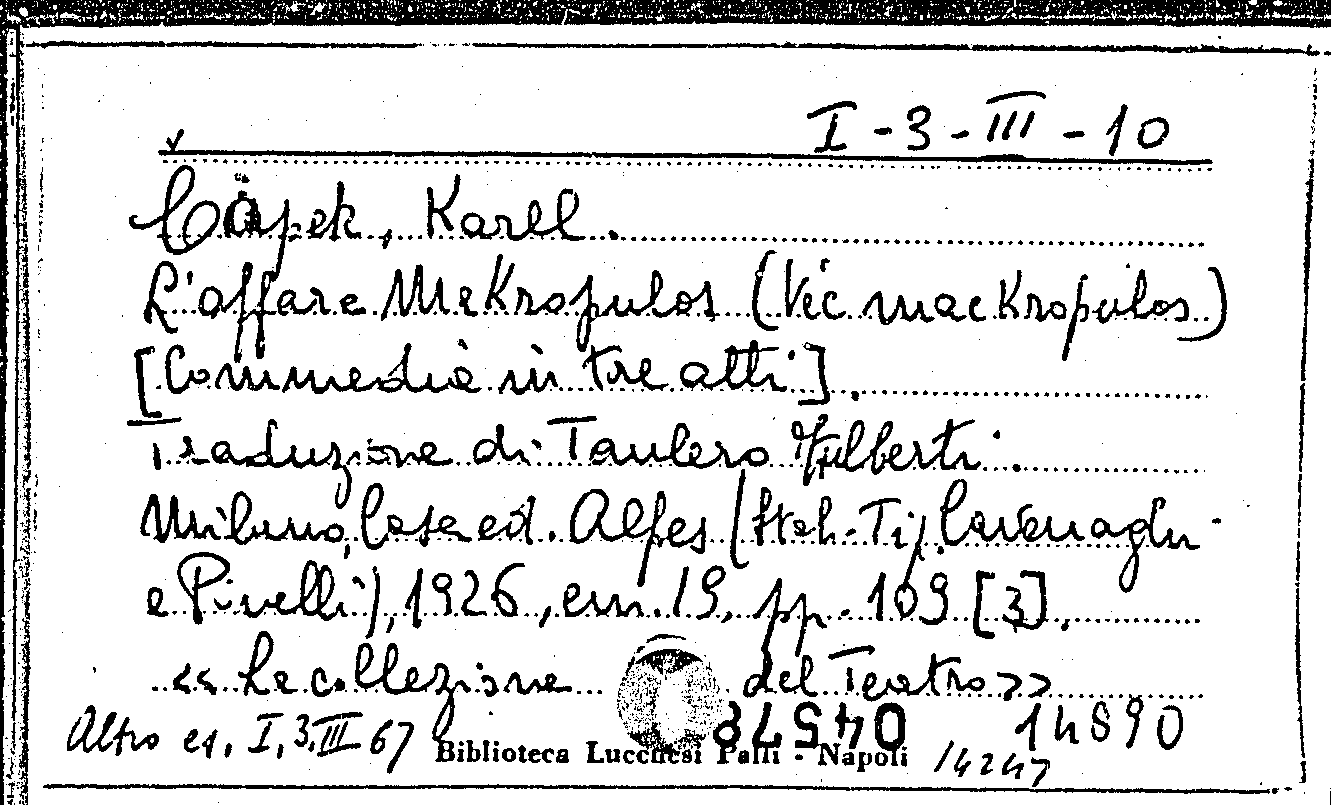 I-3-III-10
Čapek, Karel.
L'affare Makropulos (Vĕc Mackropulos)
[Commedia in tre atti].
Traduzione di Taulero Zulberti.
Milano, Casa ed. Alpes (Stab. Tip. Cavenaghi
e Pinelli), 1926, cm. 19, pp. 109 [3].
<< La collezione del Teatro >>
Altro es. I.3.III 67
04578
14890
Biblioteca Lucchesi Palli - Napoli
14247